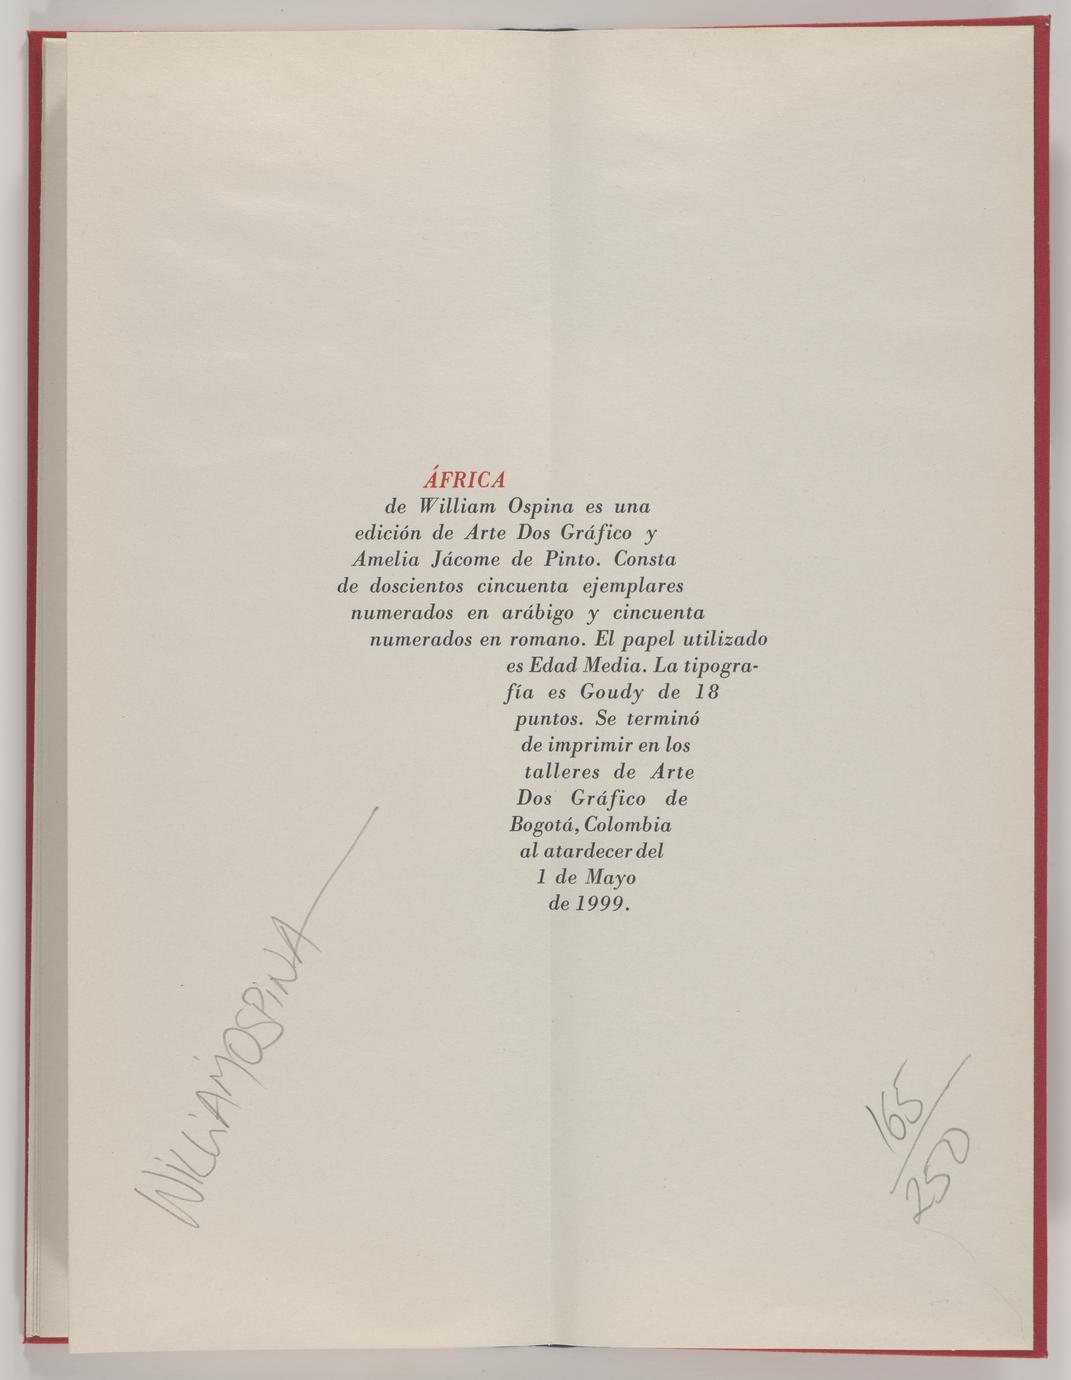 ÁFRICA
de William Ospina es una
edición de Arte Dos Gráfico y
Amelia Jácome de Pinto. Consta
de doscientos cincuenta ejemplares
numerados en arábigo y cincuenta
numerados en romano. El papel utilizado
es Edad Media. La tipogra-
fía es Goudy de 18
puntos. Se terminó
de imprimir en los
talleres de Arte
Dos Gráfico de
Bogotá, Colombia
al atardecer del
1 de Mayo
de 1999.
WILLIAM OSPINA
165/250